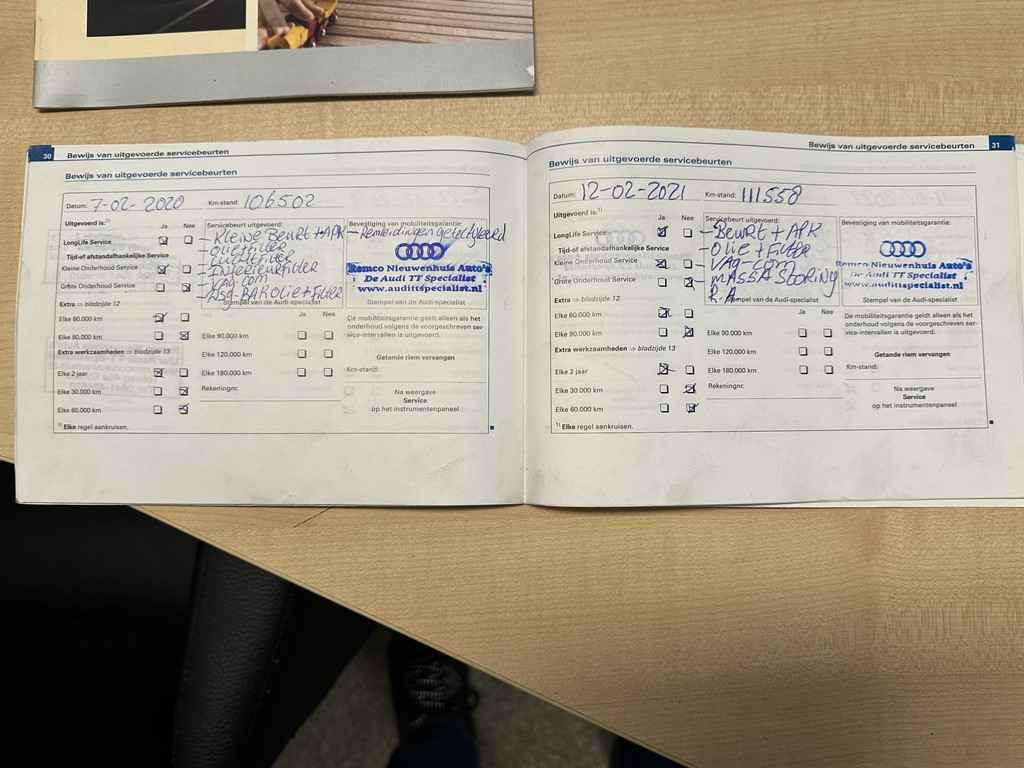 30 Bewijs van uitgevoerde servicebeurten
Bewijs van uitgevoerde servicebeurten
Datum: 7-02-2020 Km-stand: 106502
Uitgevoerd is:
Ja Nee
Servicebeurt uitgevoerd:
Bevestiging van mobiliteitsgarantie:
LongLife Service
Tijd-of afstandafhankelijke Service
Kleine Onderhoud Service
Grote Onderhoud Service
- Kleine Beurt + APK
- Oliefilter
- Luchtfilter
- Interieurfilter
- Vag com
Olie + Filter
- Remleidingen
Remco Nieuwenhuis Auto's
De Audi TT Specialist
www.audittspecialist.nl
Stempel van de Audi-specialist
Stempel van de Audi-specialist
Extra ⇒ bladzijde 12
Elke 60.000 km
Elke 90.000 km
Extra werkzaamheden ⇒ bladzijde 13
Elke 2 jaar
Elke 30.000 km
Elke 60.000 km
Ja Nee
Elke 90.000 km
Elke 120.000 km
Elke 180.000 km
Rekeningnr.
De mobiliteitsgarantie geldt alleen als het
onderhoud volgens de voorgeschreven ser-
vice-intervallen is uitgevoerd.
Getande riem vervangen
Km-stand:
Na weergave
Service
op het instrumentenpaneel
Elke regel aankruisen.
Bewijs van uitgevoerde servicebeurten 31
Bewijs van uitgevoerde servicebeurten
Datum: 12-02-2021 Km-stand: 111558
Uitgevoerd is: 1)
Ja Nee
Servicebeurt uitgevoerd:
Bevestiging van mobiliteitsgarantie:
LongLife Service
Tijd-of afstandafhankelijke Service
Kleine Onderhoud Service
Grote Onderhoud Service
- Beurt + APK
- Olie + Filter
- Vag-com
- Massa Storing
R.A
Remco Nieuwenhuis Auto's
De Audi TT Specialist
www.audittspecialist.nl
Stempel van de Audi-specialist
Stempel van de Audi-specialist
Extra ⇒ bladzijde 12
Elke 60.000 km
Elke 90.000 km
Extra werkzaamheden ⇒ bladzijde 13
Elke 2 jaar
Elke 30.000 km
Elke 60.000 km
Ja Nee
Elke 90.000 km
Elke 120.000 km
Elke 180.000 km
Rekeningnr.
De mobiliteitsgarantie geldt alleen als het
onderhoud volgens de voorgeschreven ser-
vice-intervallen is uitgevoerd.
Getande riem vervangen
Km-stand:
Na weergave
Service
op het instrumentenpaneel
1) Elke regel aankruisen.